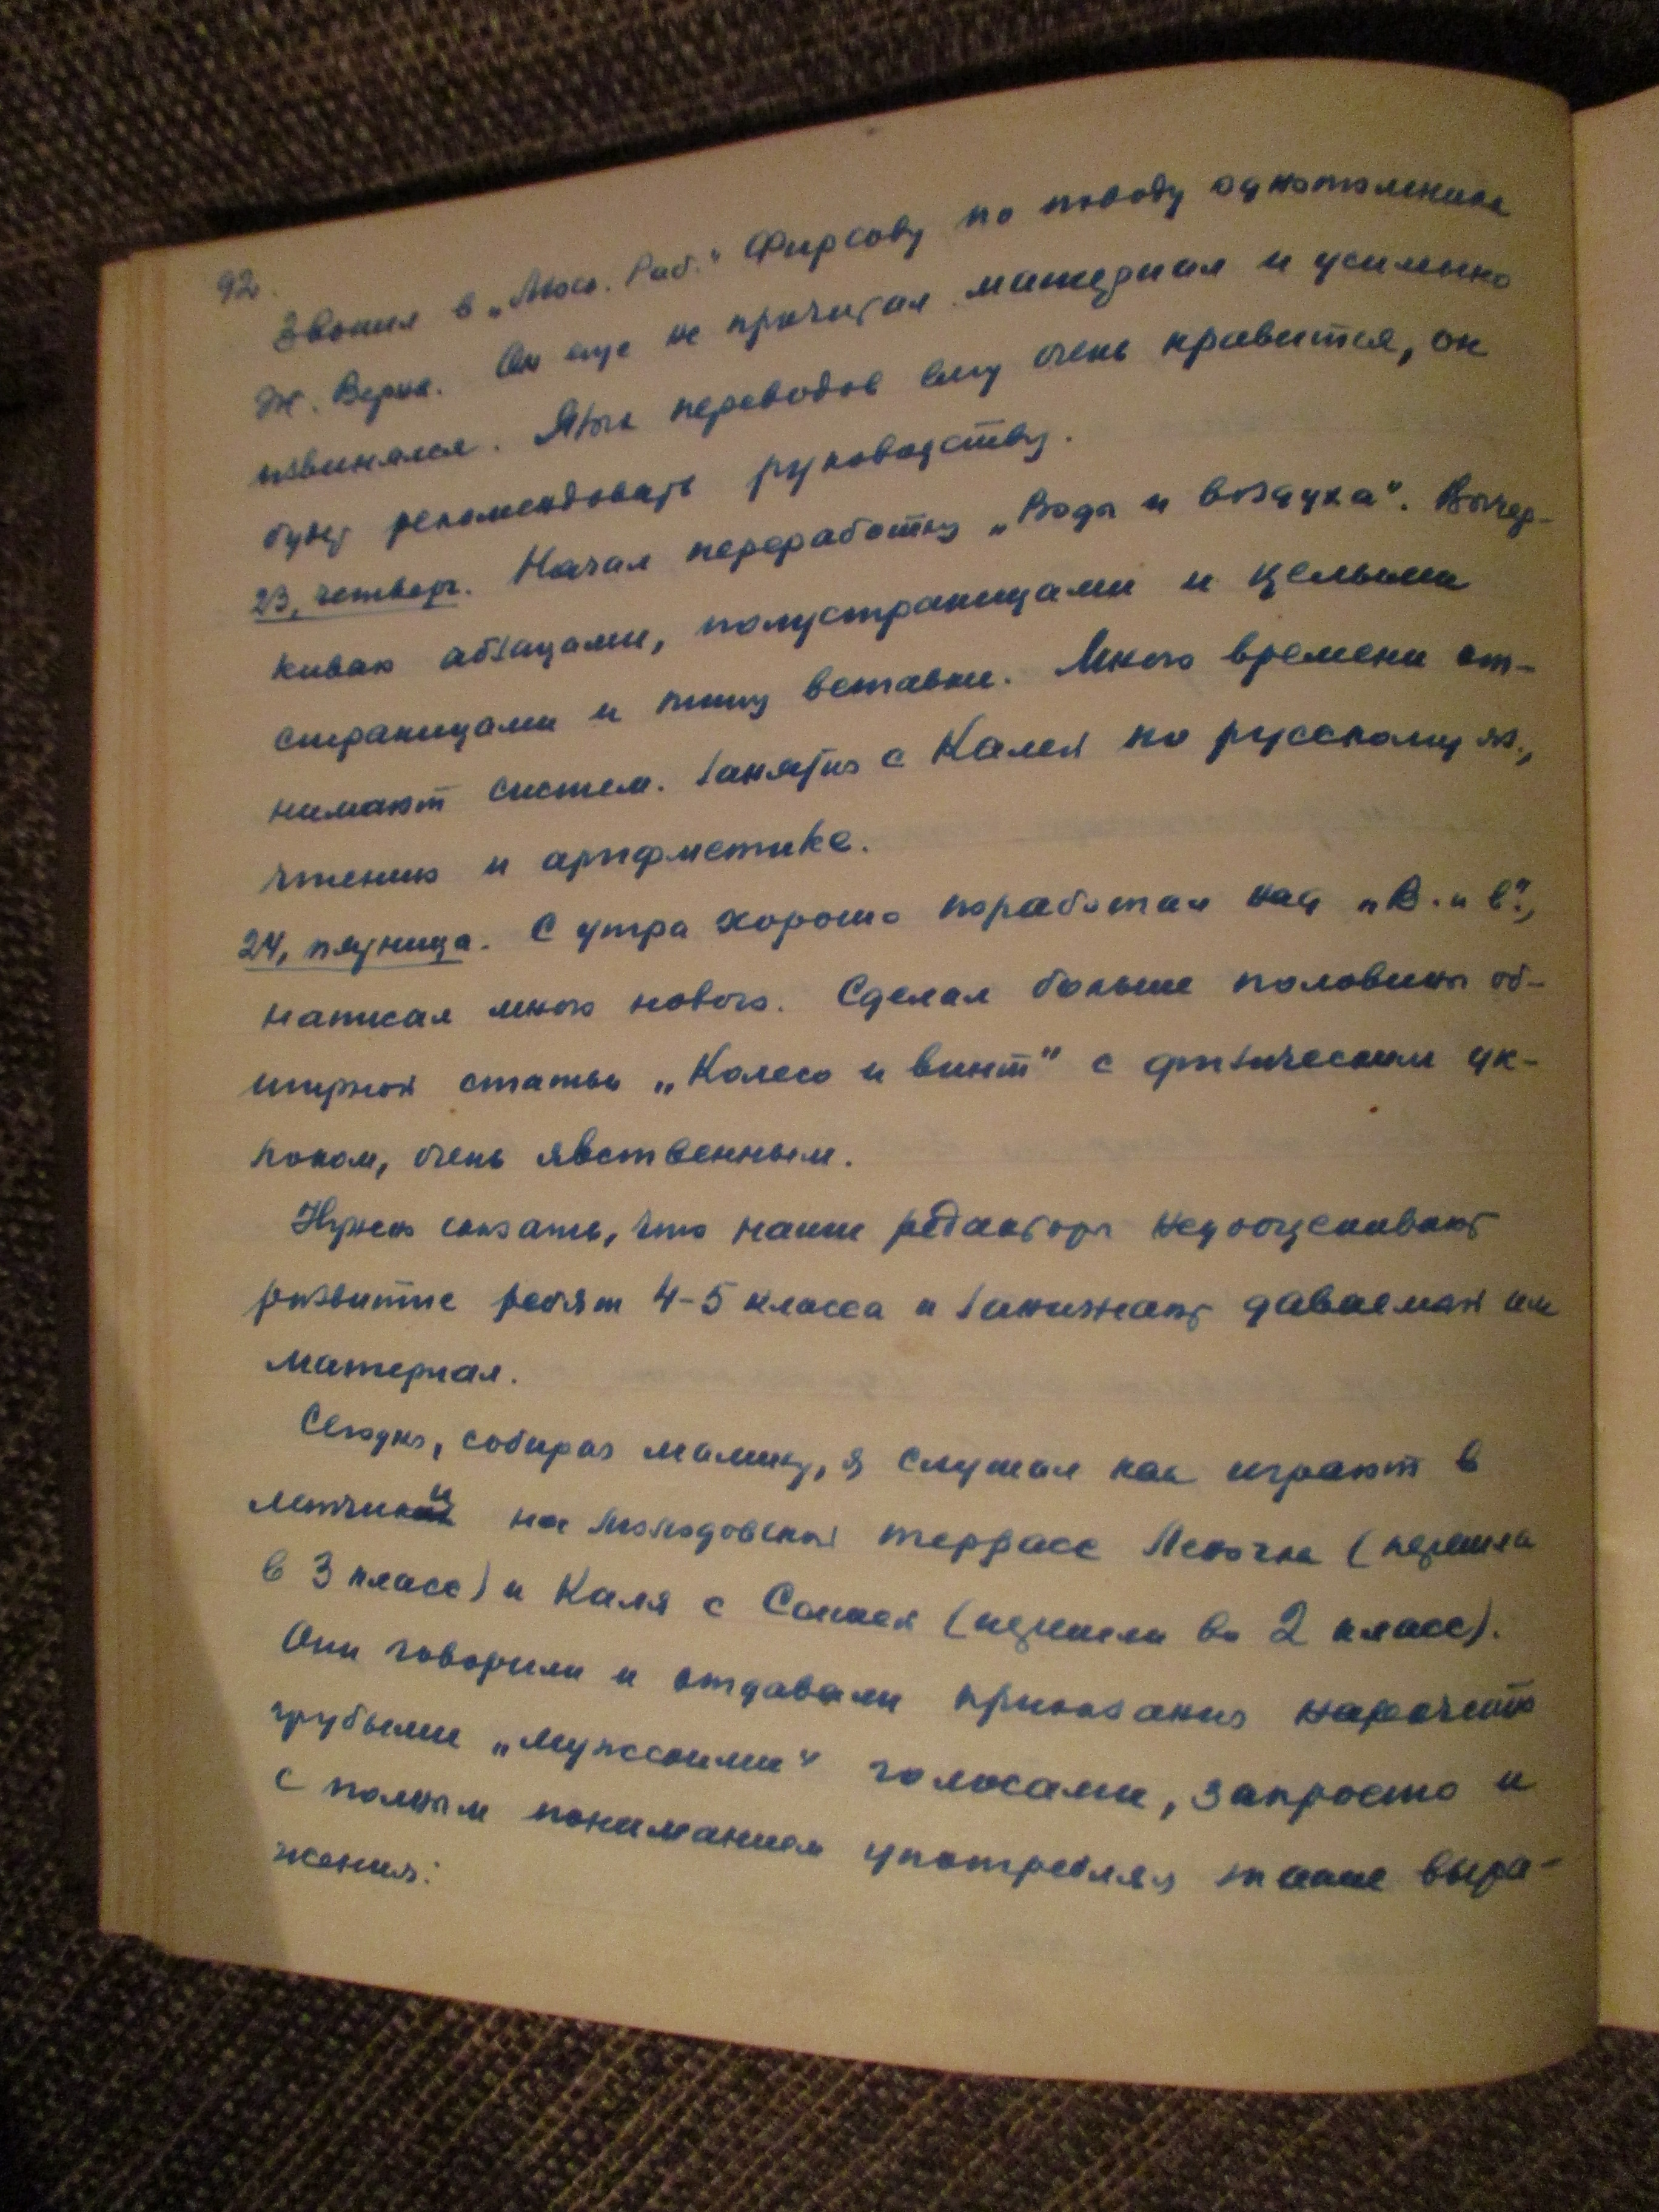 92.
Звонил в „Моск. Раб." Фирсову по поводу однотомника
Ж. Верна. Он еще не прочитал материал и усиленно
извинялся. Язык переводов ему очень нравится, он
будет рекомендовать руководству.
23, четверг. Начал переработку „Воды и воздуха". Вычер-
киваю абзацами, полустраницами и целыми
страницами и пишу вставки. Много времени от-
нимают систем. занятия с Калей по русскому яз.,
чтению и арифметике.
24, пятница. С утра хорошо поработал над „В. и В.",
написал много нового. Сделал больше половины об-
ширной статьи „Колесо и винт" с физическим ук-
лоном, очень явственным.
Нужно сказать, что наши редактора недооценивают
развитие ребят 4-5 класса и занижают даваемый им
материал.
Сегодня, собирая малину, я слушал как играют в
летчики на молодовской террасе Леночка (перешла
в 3 класс) и Каля с Соней (перешли во 2 класс).
Они говорили и отдавали приказания нарочито
грубыми „мужскими" голосами, запросто и
с полным пониманием употребляя такие выра-
жения: